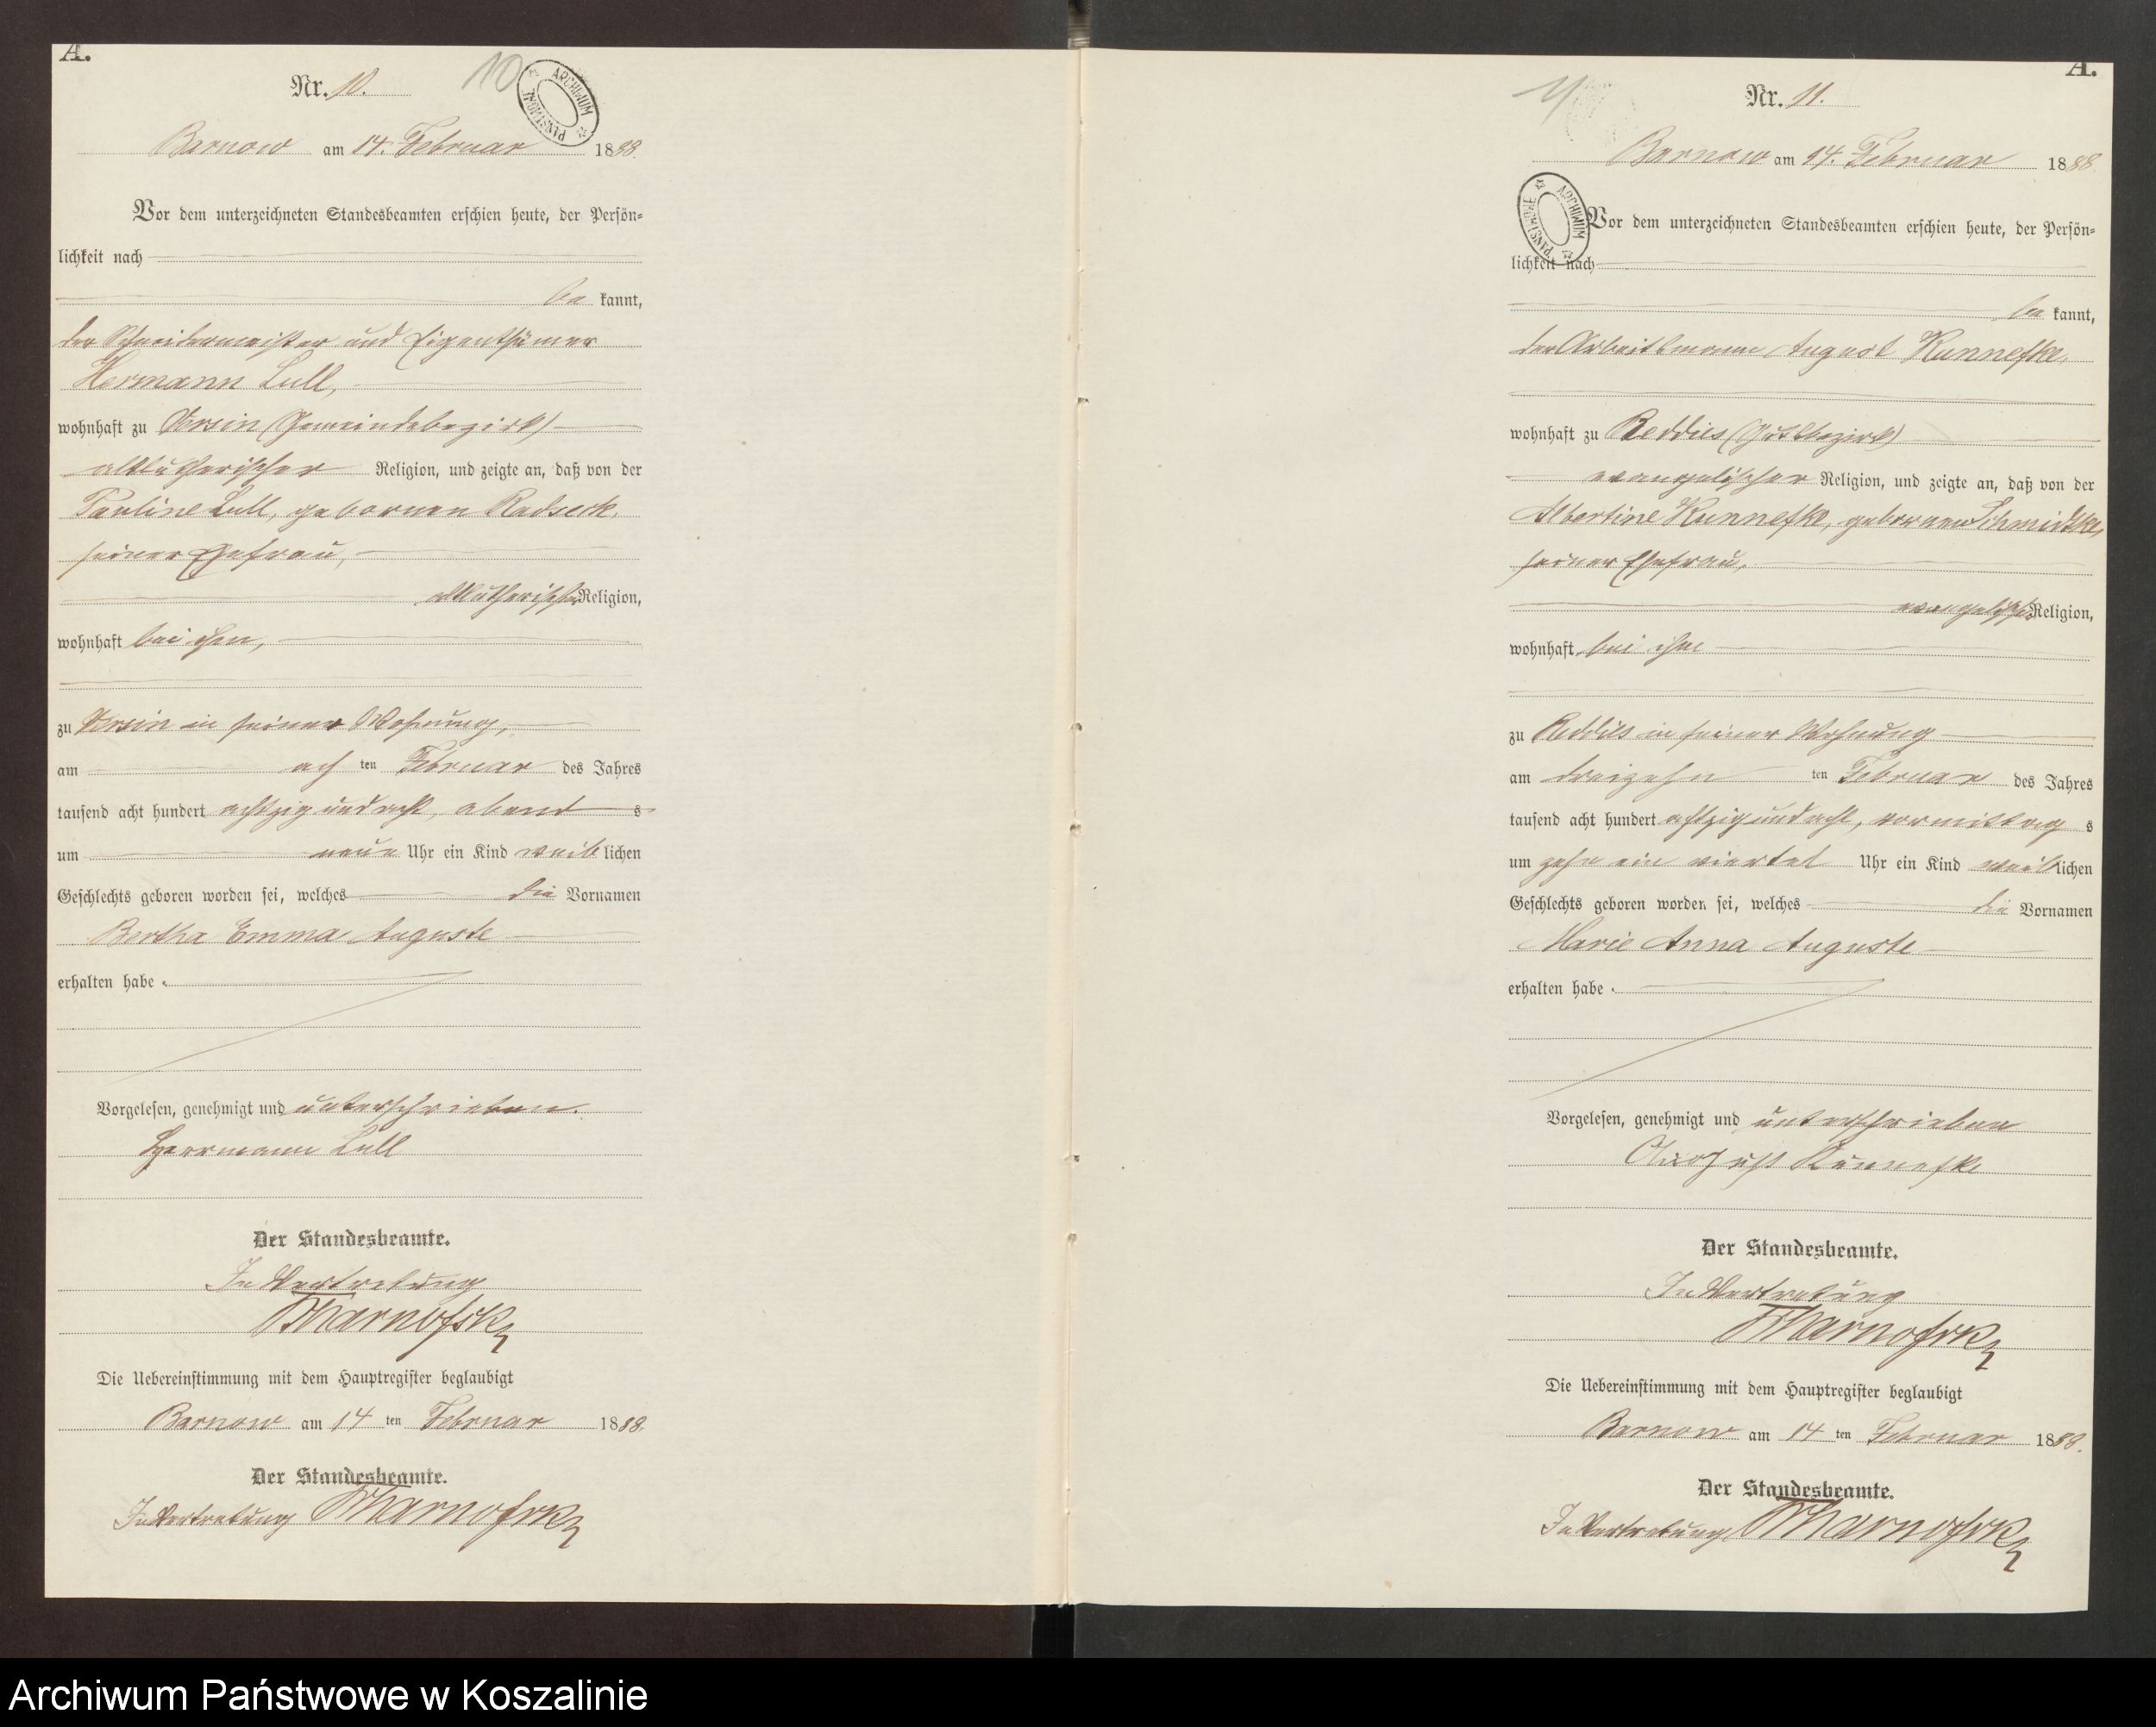 A.
Nr. 10.
10
ARCHIWUM PAŃSTWOWE
Barnow am 14. Februar 1888.
Vor dem unterzeichneten Standesbeamten erschien heute, der Persön=
lichkeit nach
be kannt,
der Schneidermeister und Eigenthümer
Hermann Lull,
wohnhaft zu Versin (Gemeindebezirk)
altlutherischer Religion, und zeigte an, daß von der
Pauline Lull, gebornen Radseck,
seiner Ehefrau,
altlutherischer Religion,
wohnhaft bei ihm,
zu Versin in seiner Wohnung,
am ach ten Februar des Jahres
tausend acht hundert achtzig und acht, abend s
um neun Uhr ein Kind weib lichen
Geschlechts geboren worden sei, welches die Vornamen
Bertha Emma Auguste
erhalten habe.
Vorgelesen, genehmigt und unterschrieben.
Herrmann Lull
Der Standesbeamte.
In Vertretung
Die Uebereinstimmung mit dem Hauptregister beglaubigt
Barnow am 14 ten Februar 1888.
Der Standesbeamte.
In Vertretung
A.
Nr. 11.
11
Barnow am 14. Februar 1888.
ARCHIWUM PAŃSTWOWE
Vor dem unterzeichneten Standesbeamten erschien heute, der Persön=
lichkeit nach
be kannt,
der Arbeitsmann August Kunnefke,
wohnhaft zu Reddies (Gutsbezirk)
evangelischer Religion, und zeigte an, daß von der
Albertine Kunnefke, gebornen Schmidtke,
seiner Ehefrau,
evangelischer Religion,
wohnhaft bei ihm
zu Reddies in seiner Wohnung
am dreizehn ten Februar des Jahres
tausend acht hundert achtzig und acht, vormittag s
um zehn ein viertel Uhr ein Kind weib lichen
Geschlechts geboren worden sei, welches die Vornamen
Marie Anna Auguste
erhalten habe.
Vorgelesen, genehmigt und unterschrieben
August Kunnefke
Der Standesbeamte.
In Vertretung
Die Uebereinstimmung mit dem Hauptregister beglaubigt
Barnow am 14 ten Februar 1888.
Der Standesbeamte.
In Vertretung
Archiwum Państwowe w Koszalinie